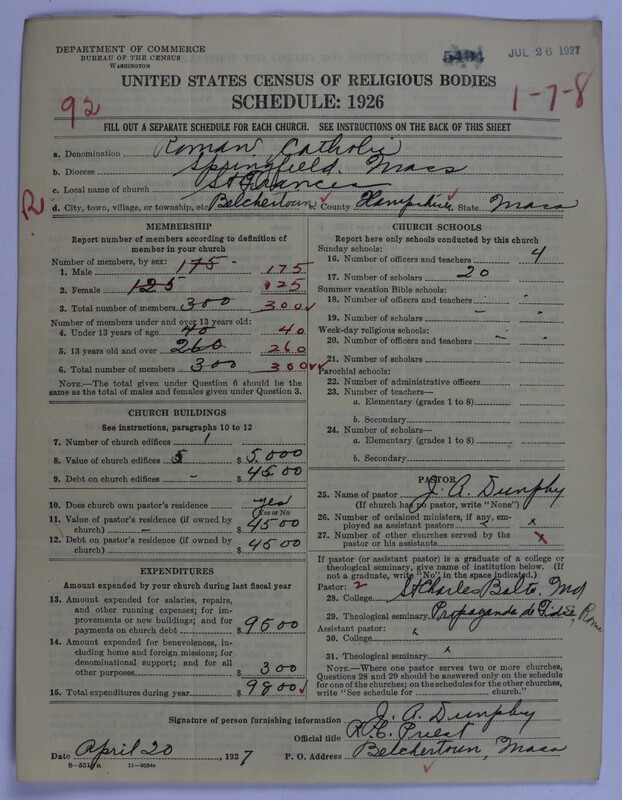 DEPARTMENT OF COMMERCE
BUREAU OF THE CENSUS
WASHINGTON
5494
JUL 26 1927
UNITED STATES CENSUS OF RELIGIOUS BODIES
SCHEDULE: 1926
92
1-7-8
FILL OUT A SEPARATE SCHEDULE FOR EACH CHURCH. SEE INSTRUCTIONS ON THE BACK OF THIS SHEET
a. Denomination Roman Catholic
b. Diocese Springfield. Mass
c. Local name of church St Frances
R
d. City, town, village, or township, etc. Belchertown e. County Hampshire State Mass
MEMBERSHIP
Report number of members according to definition of member in your church
Number of members, by sex:
1. Male 175 175
2. Female 125 125
3. Total number of members 300 300
Number of members under and over 13 years old:
4. Under 13 years of age 40 40
5. 13 years old and over 260 260
6. Total number of members 300 300
NOTE.—The total given under Question 6 should be the
same as the total of males and females given under Question 3.
CHURCH BUILDINGS
See instructions, paragraphs 10 to 12
7. Number of church edifices 1
8. Value of church edifices $ 5,000
9. Debt on church edifices - $ 4500
10. Does church own pastor's residence? yes
Yes or No
11. Value of pastor's residence (if owned by
church) $ 4500
12. Debt on pastor's residence (if owned by
church) $ 4500
EXPENDITURES
Amount expended by your church during last fiscal year
13. Amount expended for salaries, repairs,
and other running expenses; for im-
provements or new buildings; and for
payments on church debt $ 9500
14. Amount expended for benevolences, in-
cluding home and foreign missions; for
denominational support; and for all
other purposes $ 300
15. Total expenditures during year $ 9800
CHURCH SCHOOLS
Report here only schools conducted by this church
Sunday schools:
16. Number of officers and teachers 4
17. Number of scholars 20
Summer vacation Bible schools:
18. Number of officers and teachers
19. Number of scholars
Week-day religious schools:
20. Number of officers and teachers
21. Number of scholars
Parochial schools:
22. Number of administrative officers
23. Number of teachers—
a. Elementary (grades 1 to 8)
b. Secondary
24. Number of scholars—
a. Elementary (grades 1 to 8)
b. Secondary
PASTOR
25. Name of pastor J. A. Dunphy
(If church has no pastor, write "None")
26. Number of ordained ministers, if any, em-
ployed as assistant pastors
27. Number of other churches served by the
pastor or his assistants
If pastor (or assistant pastor) is a graduate of a college or
theological seminary, give name of institution below. (If
not a graduate, write "No" in the space indicated.)
Pastor: 2
28. College St Charles Balto. Md
29. Theological seminary Propaganda de Fide, Rome
Assistant pastor:
30. College
31. Theological seminary
NOTE.—Where one pastor serves two or more churches,
Questions 28 and 29 should be answered only on the schedule
for one of the churches; on the schedules for the other churches,
write "See schedule for church."
Signature of person furnishing information J. A. Dunphy
Official title R. C. Priest
Date April 20, 1927 P. O. Address Belchertown, Mass